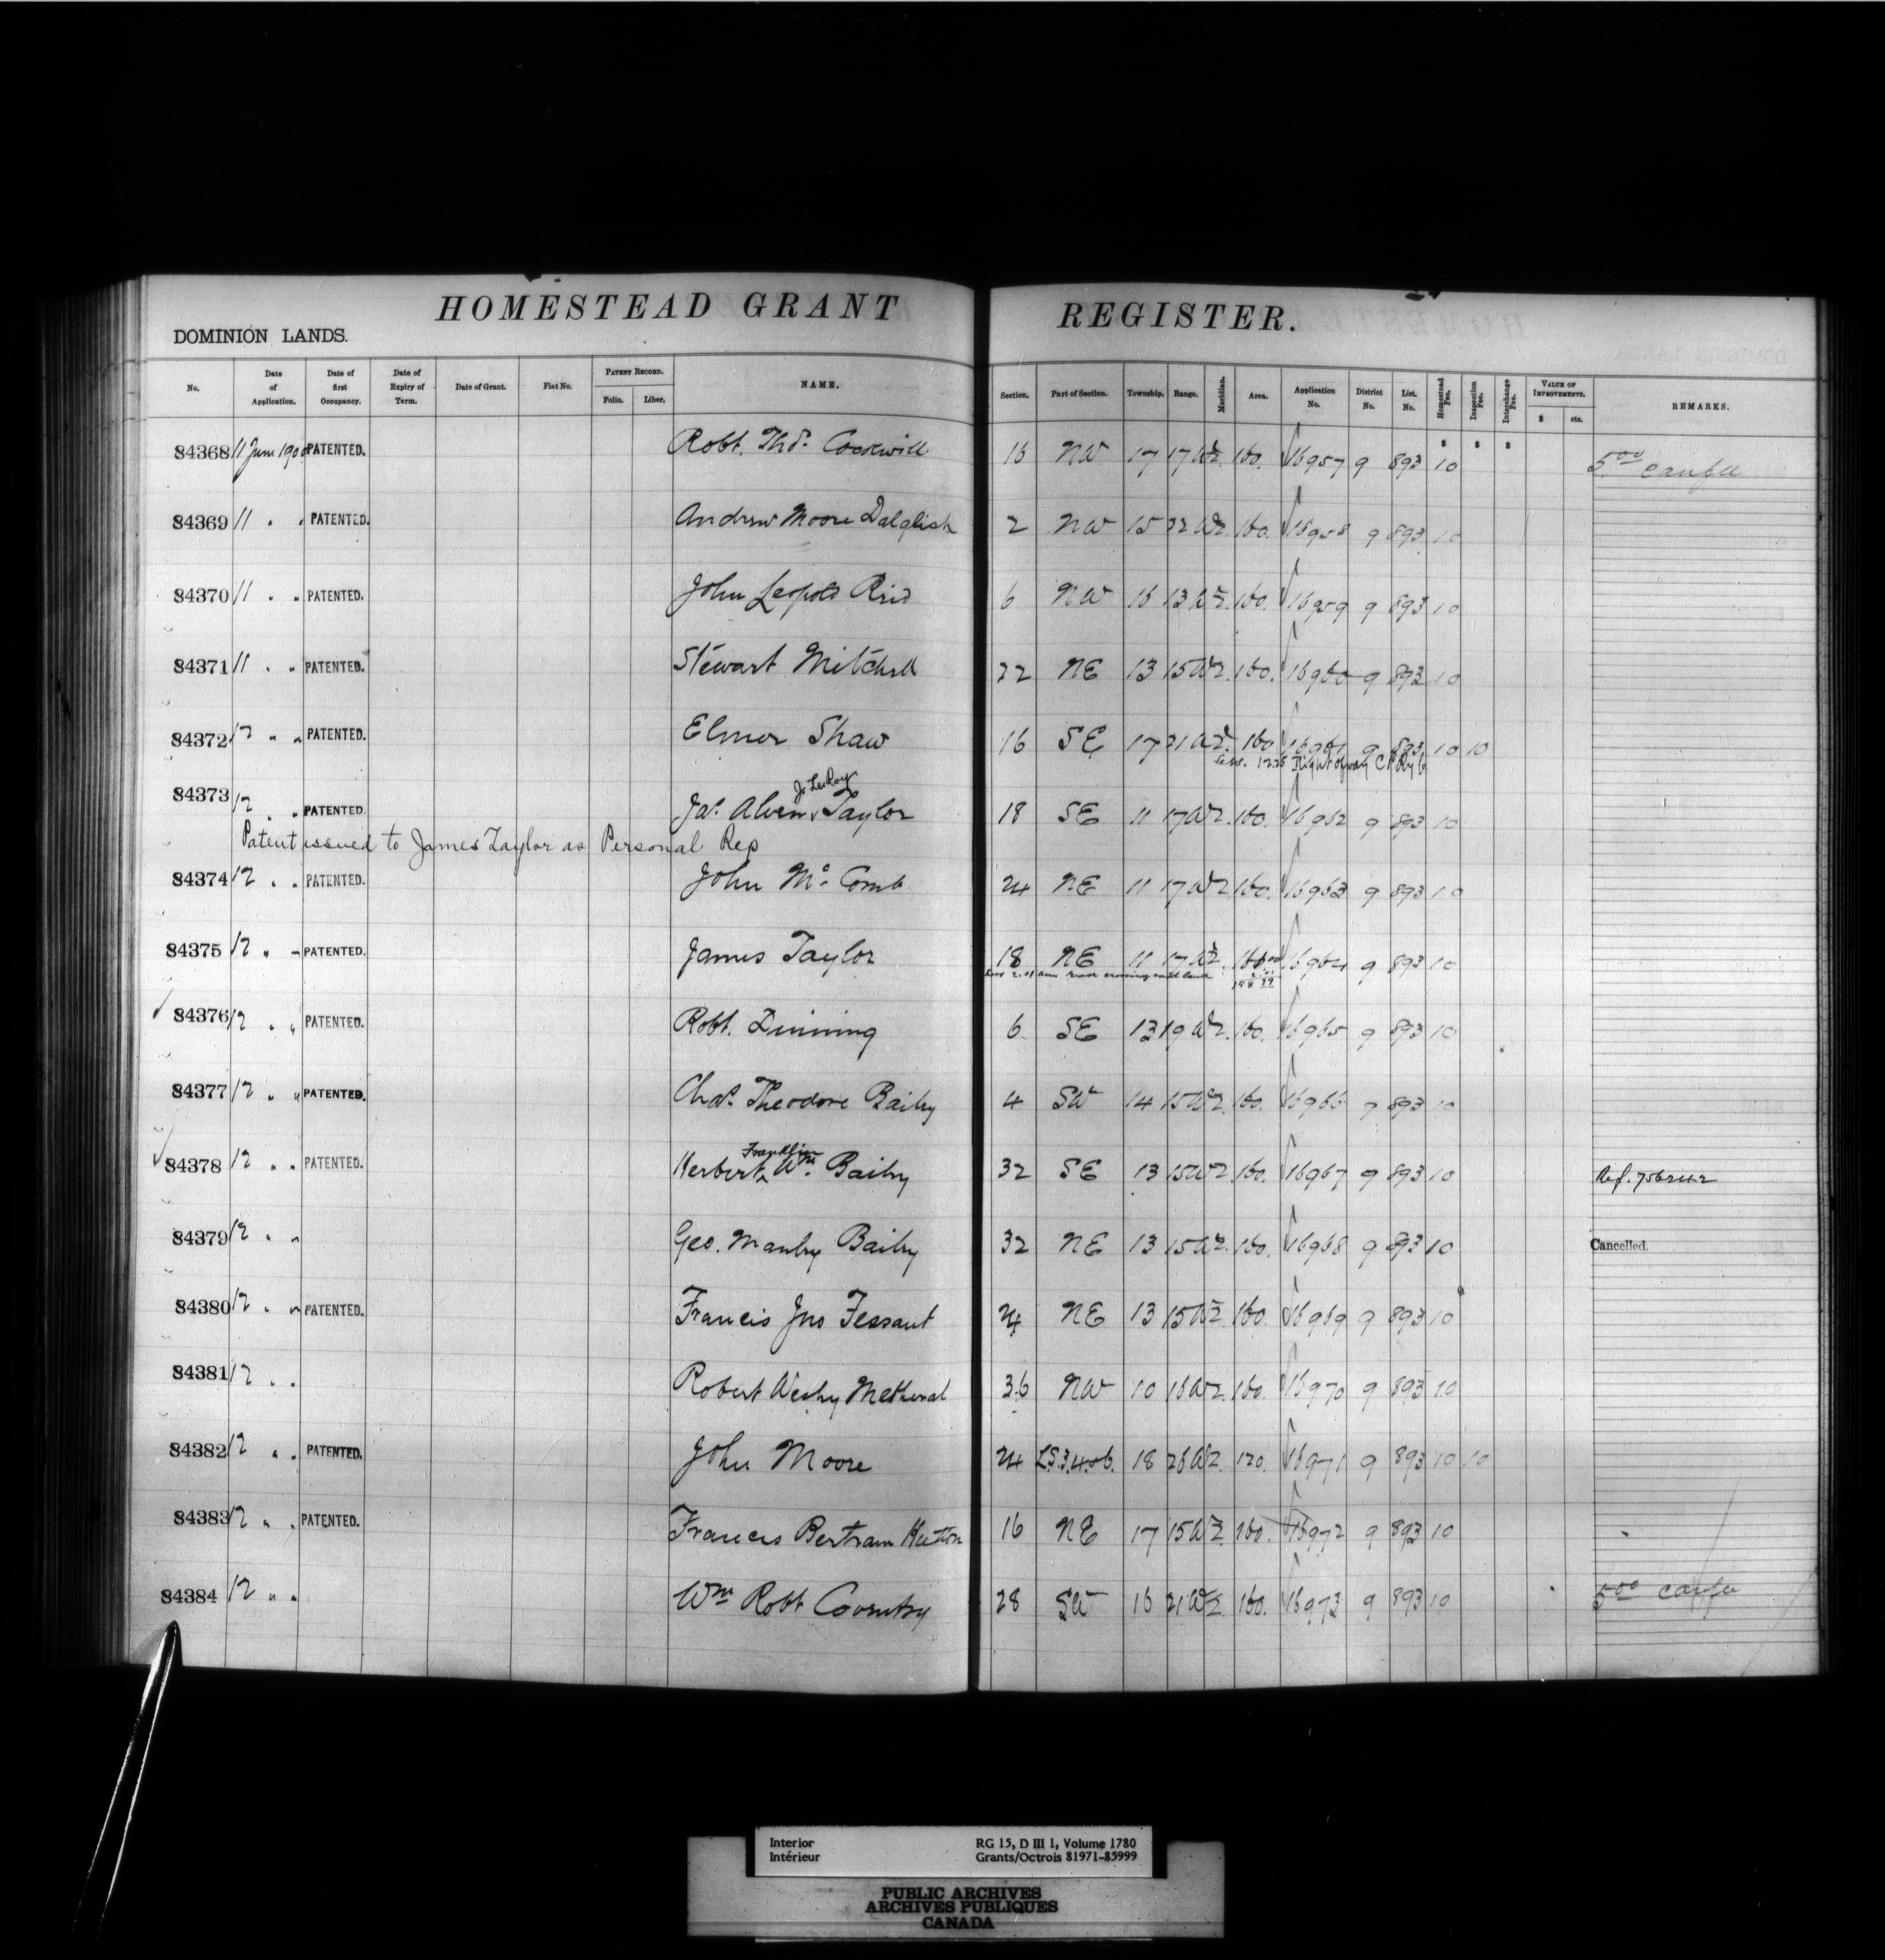 HOMESTEAD GRANT REGISTER.
DOMINION LANDS.
No. Date of Application. Date of first Occupancy. Date of Expiry of Term. Date of Grant. Fiat No. PATENT RECORD. Folio. Liber. NAME. Section. Part of Section. Township. Range. Meridian. Area. Application No. District No. List. No. Homestead Fee. Inspection Fee. Interchange Fee. VALUE OF IMPROVEMENTS. $ cts. REMARKS.
$ $ $
84368 11 June 1900 PATENTED. Robt. Thos. Cockwill 16 NW 17 17 W2. 160. 16957 9 893 10 5.00
84369 11 " " PATENTED. Andrew Moore Dalglish 2 NW 15 22 W2. 160. 16958 9 893 10
84370 11 " " PATENTED. John Leopold Reid 6 NW 16 13 W2. 160. 16959 9 893 10
84371 11 " " PATENTED. Stewart Mitchell 22 NE 13 15 W2. 160. 16960 9 893 10
84372 12 " " PATENTED. Elmer Shaw 16 SE 17 21 W2. 160 16961 9 893 10 10
Less. 12.25 Right of way C P Ry Co
Jo LeRoy
84373 12 " " PATENTED. Jas. Alven Taylor 18 SE 11 17 W2. 160. 16962 9 893 10
Patent issued to James Taylor as Personal Rep
84374 12 " " PATENTED. John Mc Comb 24 NE 11 17 W2 160. 16963 9 893 10
84375 12 " " PATENTED. James Taylor 18 NE 11 17 W2. 160.00 16964 9 893 10
Less 2.01 road crossing said land 2.01
158 99
84376 12 " " PATENTED. Robt. Dinning 6 SE 13 19 W2. 160. 16965 9 893 10
84377 12 " " PATENTED. Chas. Theodore Bailey 4 SW 14 15 W2. 160. 16966 9 893 10
Franklin
84378 12 " " PATENTED. Herbert ^ Wm. Bailey 32 SE 13 15 W2 160. 16967 9 893 10 Ref. 756242
84379 12 " " Geo. Manley Bailey 32 NE 13 15 W2. 160. 16968 9 893 10 Cancelled.
84380 12 " " PATENTED. Francis Jno Tessaut 24 NE 13 15 W2. 160. 16969 9 893 10
84381 12 " " Robert Wesley Metheral 36 NW 10 16 W2. 160. 16970 9 893 10
84382 12 " " PATENTED. John Moore 24 L.S. 3,4.&6. 18 26 W2. 120. 16971 9 893 10 10
84383 12 " " PATENTED. Francis Bertram Hutton 16 NE 17 15 W2. 160. 16972 9 893 10
84384 12 " " Wm Robt Coventry 28 SW 16 21 W2. 160. 16973 9 893 10 5.00
Interior RG 15, D III 1, Volume 1780
Intérieur Grants/Octrois 81971-85999
PUBLIC ARCHIVES
ARCHIVES PUBLIQUES
CANADA